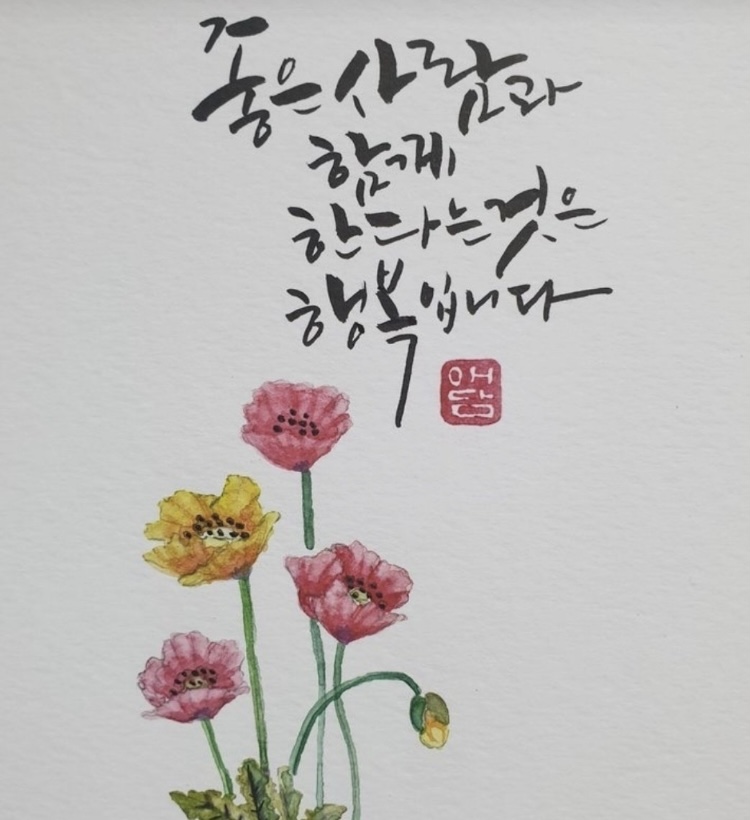 좋은 사람과
함께
한다는것은
행복입니다
애
담